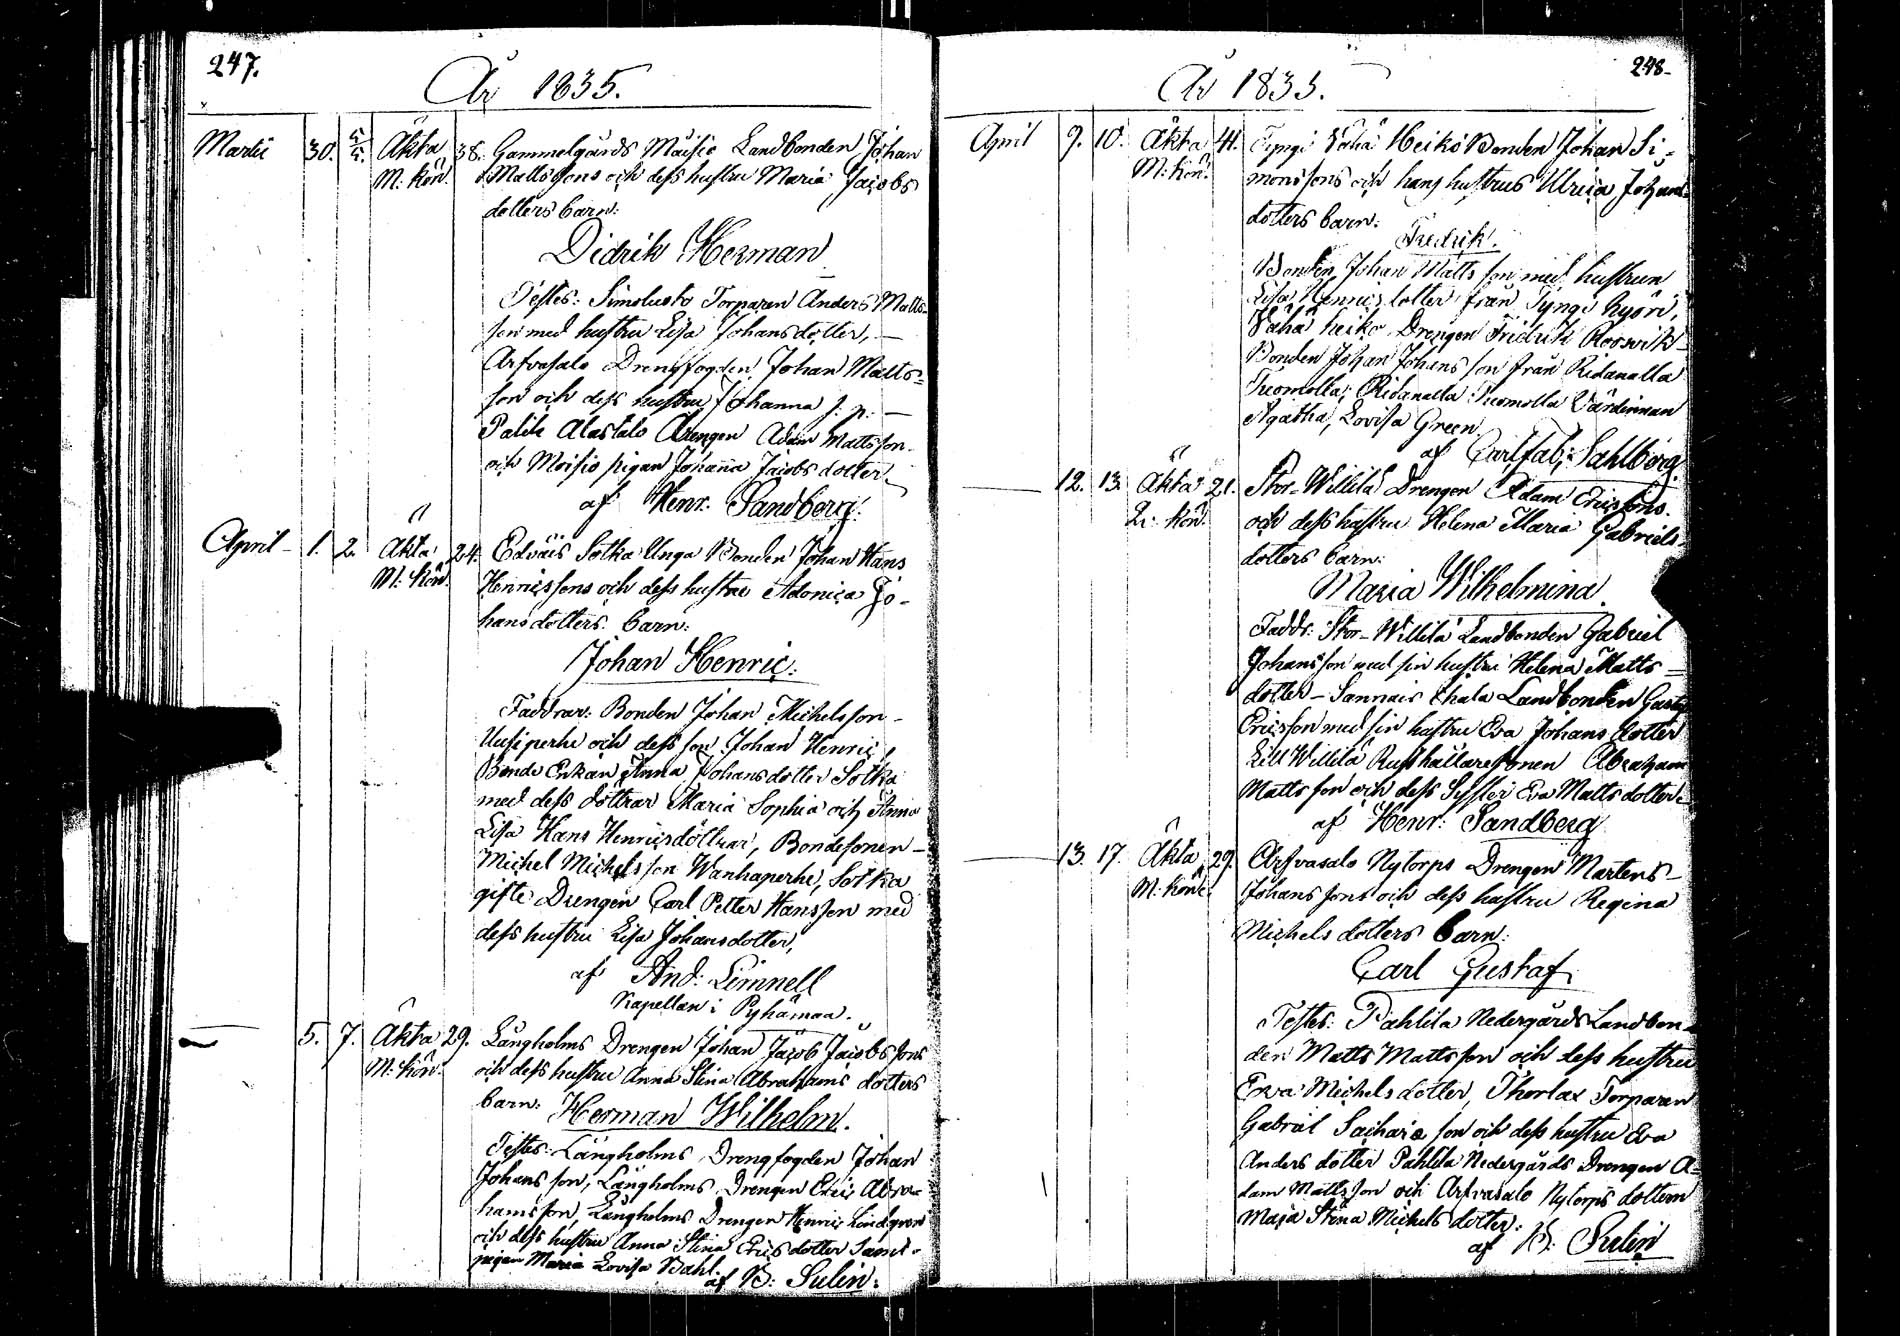 247.
År 1835.
Martii 30. 5/4. Äkta 38. Gammelgårds Moisio Landbonden Johan
M: Kön. Mattssons och dess hustru Maria Jacobs
dotters barn:
Didrik Herman
Testes: Simolusto Torparen Anders Matts-
son med hustru Lisa Johansdotter, —
Arfvasalo Drengfogden Johan Matts=
son och dess hustru Johanna J. n. —
Palik Alastalo Drengen Adam Mattsson
och Moisio pigan Johanna Jacobsdotter.
af Henr: Sandberg.
April — 1. 2. Äkta 24. Edväis Sotka Unga Bonden Johan Hans
M: Kön. Henricssons och dess hustru Adonica Jo-
hansdotters barn:
Johan Henric.
Faddrar: Bonden Johan Michelsson
Uusiperhe och dess son Johan Henric,
Bonde Enkan Anna Johansdotter Sotka
med dess döttrar Maria Sophia och Anna
Lisa Hans Henricsdöttrar, Bondesonen —
Michel Michelsson Wanhaperhe, Sotka
gifte Drengen Carl Petter Hansson med
dess hustru Lisa Johansdotter,
af And: Limnell
Kapellan i Pyhämaa.
— 5. 7. Äkta 29. Långholms Drengen Johan Jacob Jacobssons
M: Kön. och dess hustru Anna Stina Abrahams dotters
barn: Herman Wilhelm.
Testes: Långholms Drengfogden Johan
Johansson, Långholms Drengen Eric Abra-
hamsson Långholms Drengen Henric Lindqvist
och dess hustru Anna Stina Ericsdotter samt
pigan Maria Lovisa Dahl.
af B: Sulin.
248.
År 1835.
April 9. 10. Äkta 41. Tyngi Vähä Heikö Bonden Johan Si=
M: Kön. monssons och hans hustrus Ulrica Johans=
dotters barn:
Fredrik.
Bonden Johan Mattsson med hustrun
Lisa Henricsdotter från Tyngi Nyöri,
Vähä heikö Drengen Fridrik Roswik
Bonden Johan Johansson från Ridanalla
Tuomolla; Ridanalla Tuomolla Värdinnan
Agatha Lovisa Green.
af Carl Fab: Sahlberg.
— 12. 13. Äkta 21. Stor-Willila Drengen Adam Ericssons
Q: Kön. och dess hustru Helena Maria Gabriels-
dotters barn:
Maria Wilhelmina.
Faddr: Stor-Willila Landbonden Gabriel
Johansson med sin hustru Helena Matts=
dotter — Sannais Ehala Landbonden Gustaf
Ericsson med sin hustru Eva Johans dotter
Lill Willila Rusthållaresonen Abraham
Mattsson och dess Syster Eva Mattsdotter.
af Henr: Sandberg
— 13. 17. Äkta 29. Arfvasalo Nytorps Drengen Martens-
M: Kön. Johanssons och dess hustru Regina
Michelsdotters barn:
Carl Gustaf.
Testes: Pahlila Nedergårds Landbon-
den Matts Mattsson och dess hustru
Erva Michelsdotter, Thorlax Torparen
Gabriel Sachariæ son och dess hustru Eva
Anders dotter Pahlila Nedergårds Drengen A-
dam Mattsson och Arfvasalo Nytorps dottern
Maja Stina Michels dotter.
af B. Sulin